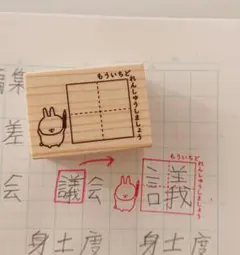 もういちど
れんしゅうしましょう
編集
差
会
議会
もういちど
れんしゅうしましょう
議
身土度
身土度